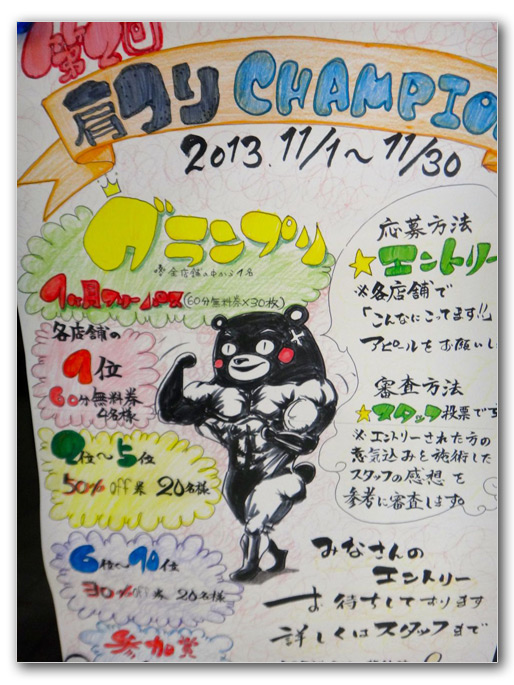 第2回
肩コリ CHAMPIO
2013. 11/1~11/30
グランプリ
全店舗の中から1名
1ヶ月フリーパス(60分無料券×30枚)
各店舗の
1位
60分無料券
4名様
2位~5位
50% off券 20名様
6位~10位
30% off券 20名様
参加賞
応募方法
★エントリー
※各店舗で
「こんなにこってます!!」
アピールをお願いし
審査方法
★スタッフ投票です
※エントリーされた方の
意気込みを施術した
スタッフの感想を
参考に審査します。
みなさんの
エントリー
お待ちしております
詳しくはスタッフまで